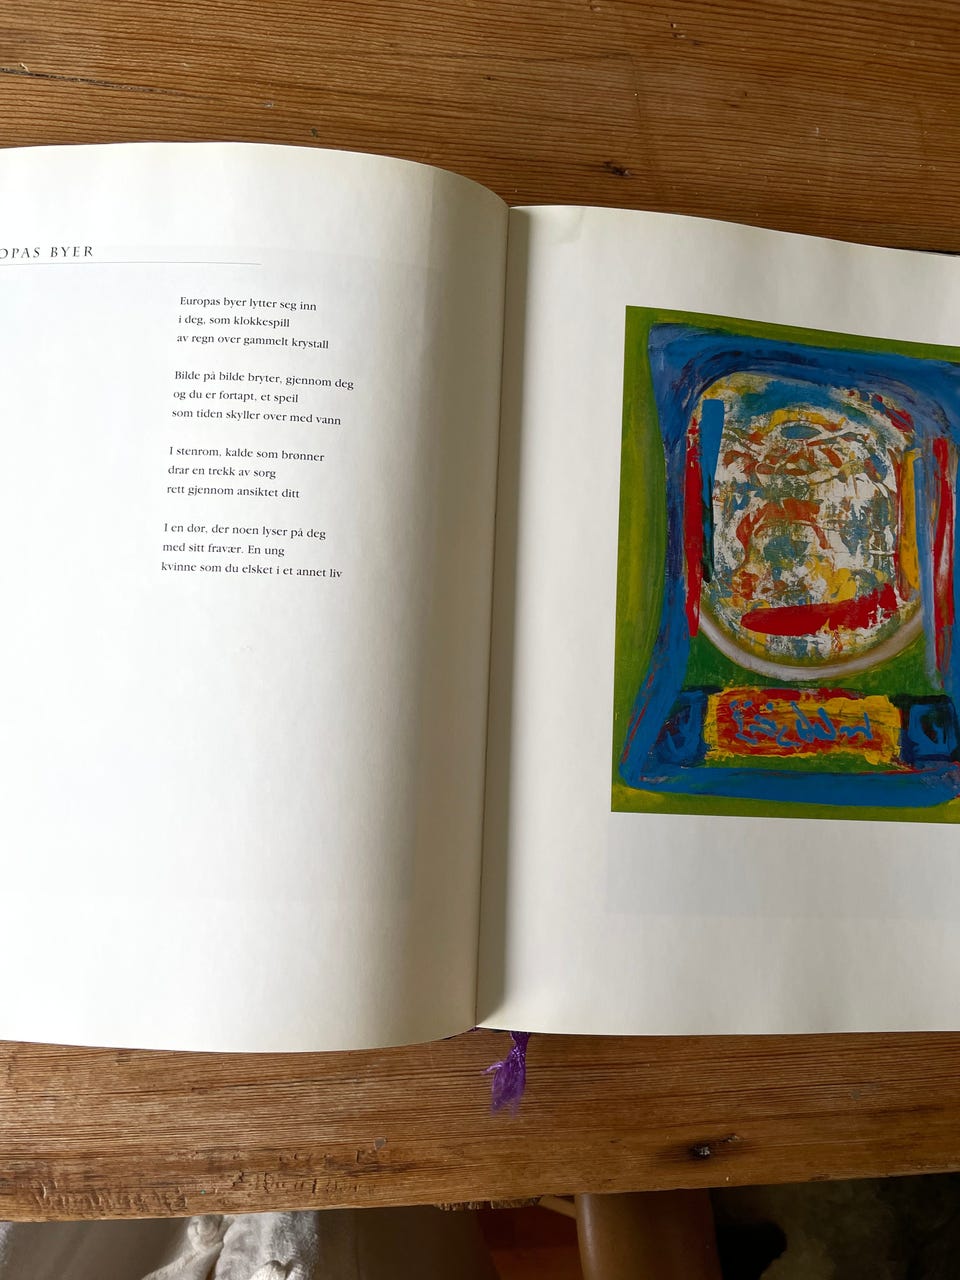 OPAS BYER
Europas byer lytter seg inn
i deg, som klokkespill
av regn over gammelt krystall
Bilde på bilde bryter, gjennom deg
og du er fortapt, et speil
som tiden skyller over med vann
I stenrom, kalde som brønner
drar en trekk av sorg
rett gjennom ansiktet ditt
I en dør, der noen lyser på deg
med sitt fravær. En ung
kvinne som du elsket i et annet liv